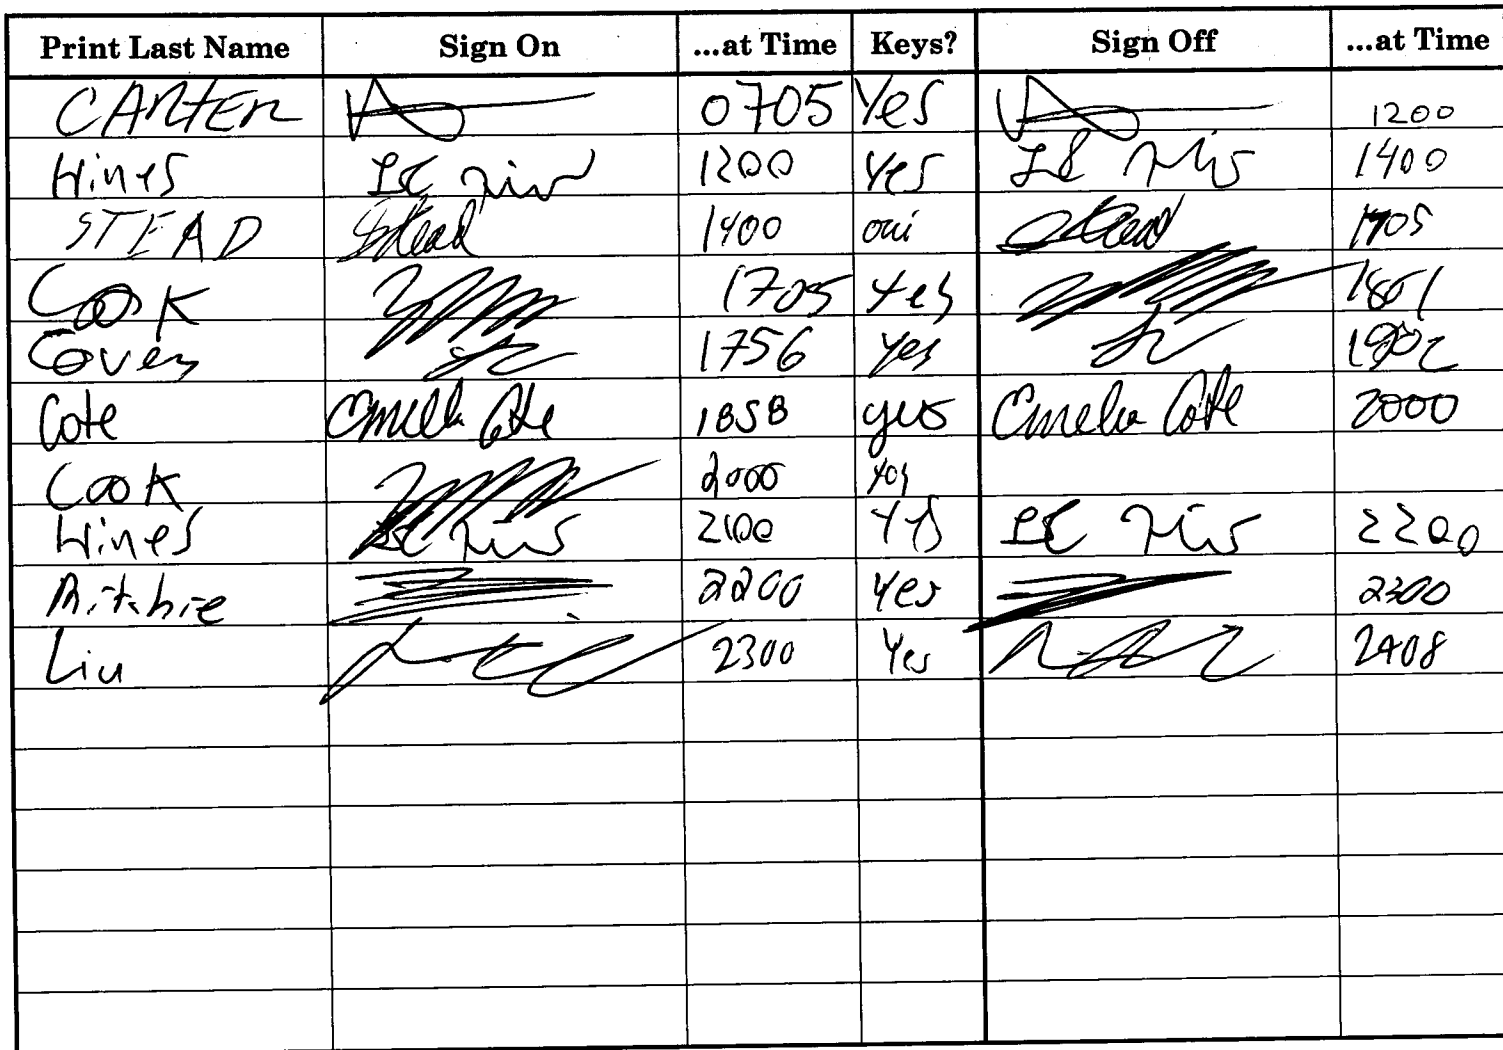 Print Last Name Sign On ...at Time Keys? Sign Off ...at Time
CARTER 0705 Yes 1200
Hines 1200 Yes 1400
STEAD Stead 1400 oui Stead 1705
Cook 1705 Yes 1801
Covey 1756 Yes 1902
Cote Cote 1858 yes Cote 2000
Cook 2000 Yes
Hines 2100 Yes 2200
Ritchie 2200 Yes 2300
Liu 2300 Yes 2408